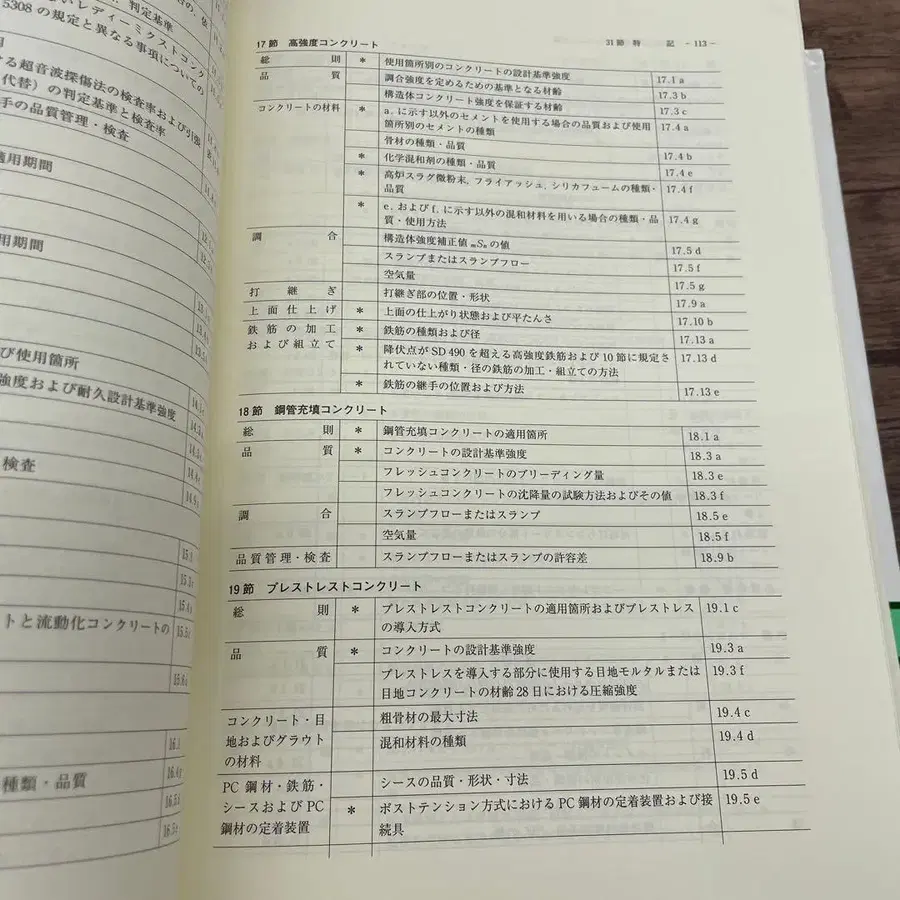 判定基準
いレディーミクストコンク
5308 の規定と異なる事項についての
る超音波探傷法の検査率および引張
代替）の判定基準と検査率
手の品質管理・検査
適用期間
用期間
び使用箇所
強度および耐久設計基準強度
検査
トと流動化コンクリートの
種類・品質
31節 特 記 －113－
17節 高強度コンクリート
総 則 * 使用箇所別のコンクリートの設計基準強度 17.1 a
品 質 調合強度を定めるための基準となる材齢 17.3 b
構造体コンクリート強度を保証する材齢 17.3 c
コンクリートの材料 * a. に示す以外のセメントを使用する場合の品質および使用 17.4 a
箇所別のセメントの種類
骨材の種類・品質 17.4 b
* 化学混和剤の種類・品質 17.4 e
* 高炉スラグ微粉末，フライアッシュ，シリカフュームの種類・ 17.4 f
品質
* e. および f. に示す以外の混和材料を用いる場合の種類・品 17.4 g
質・使用方法
調 合 構造体強度補正値 mSn の値 17.5 d
スランプまたはスランプフロー 17.5 f
空気量 17.5 g
打 継 ぎ 打継ぎ部の位置・形状 17.9 a
上面仕上げ * 上面の仕上がり状態および平たんさ 17.10 b
鉄筋の加工 * 鉄筋の種類および径 17.13 a
および組立て * 降伏点が SD 490 を超える高強度鉄筋および 10 節に規定さ 17.13 d
れていない種類・径の鉄筋の加工・組立ての方法
* 鉄筋の継手の位置および方法 17.13 e
18節 鋼管充填コンクリート
総 則 * 鋼管充填コンクリートの適用箇所 18.1 a
品 質 * コンクリートの設計基準強度 18.3 a
フレッシュコンクリートのブリーディング量 18.3 e
フレッシュコンクリートの沈降量の試験方法およびその値 18.3 f
調 合 スランプフローまたはスランプ 18.5 e
空気量 18.5 f
品質管理・検査 スランプフローまたはスランプの許容差 18.9 b
19節 プレストレストコンクリート
総 則 * プレストレストコンクリートの適用箇所およびプレストレス 19.1 c
の導入方式
品 質 * コンクリートの設計基準強度 19.3 a
プレストレスを導入する部分に使用する目地モルタルまたは 19.3 f
目地コンクリートの材齢 28 日における圧縮強度
コンクリート・目 粗骨材の最大寸法 19.4 c
地およびグラウト 混和材料の種類 19.4 d
の材料
PC 鋼材・鉄筋・ シースの品質・形状・寸法 19.5 d
シースおよび PC * ポストテンション方式における PC 鋼材の定着装置および接 19.5 e
鋼材の定着装置 続具